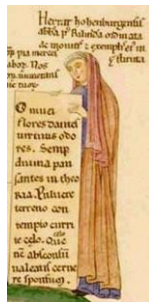 Herrat hohenburgensis
abba p Rilinda ordinata
ac monitis 7 exemplis ei in
stituta
labor. Nos
O niuei
flores dantes
uirtutis odo
res. Semp
diuina pau
santes in theo
ria. Puluere
terreno con
tempto curri
te celo. Que
nc absconsū
ualeatis cerne
re sponsum.